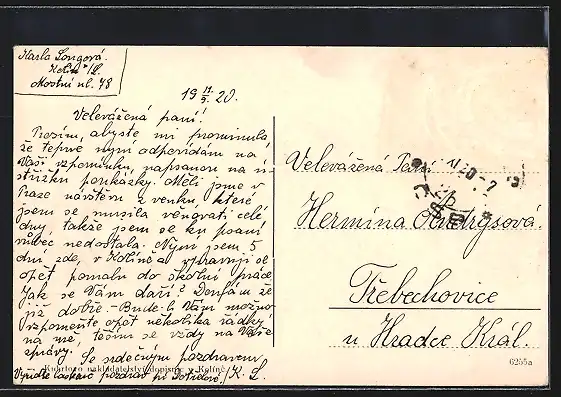 Karla Longová.
Kolín / L.
Mostní ul. 48
19 11/9. 20.
Velevážená paní!
Prosím, abyste mi prominula,
že teprve nyní odpovídám na
Vaši vzpomínku, napsanou na ú-
střižku poukázky. Měli jsme v
Praze návštěvu z venku, které
jsem se musila věnovati celé
dny, takže jsem se ku psaní
vůbec nedostala. Nyní jsem 5
dní zde, v Kolíně a vpravuji se
opět pomalu do školní práce.
Jak se Vám daří? Doufám že
již dobře. - Bude-li Vám možno
vzpomeňte opět několika řádky
na mne, těším se vždy na Vaše
zprávy. Se srdečným pozdravem
K. L.
Vyřiďte laskavě pozdrav
Kuhrtovo nakladatelství dopisnic v Kolíně
Velevážená Paní
Hermína
Třebechovice
u Hradce Král.
6255a